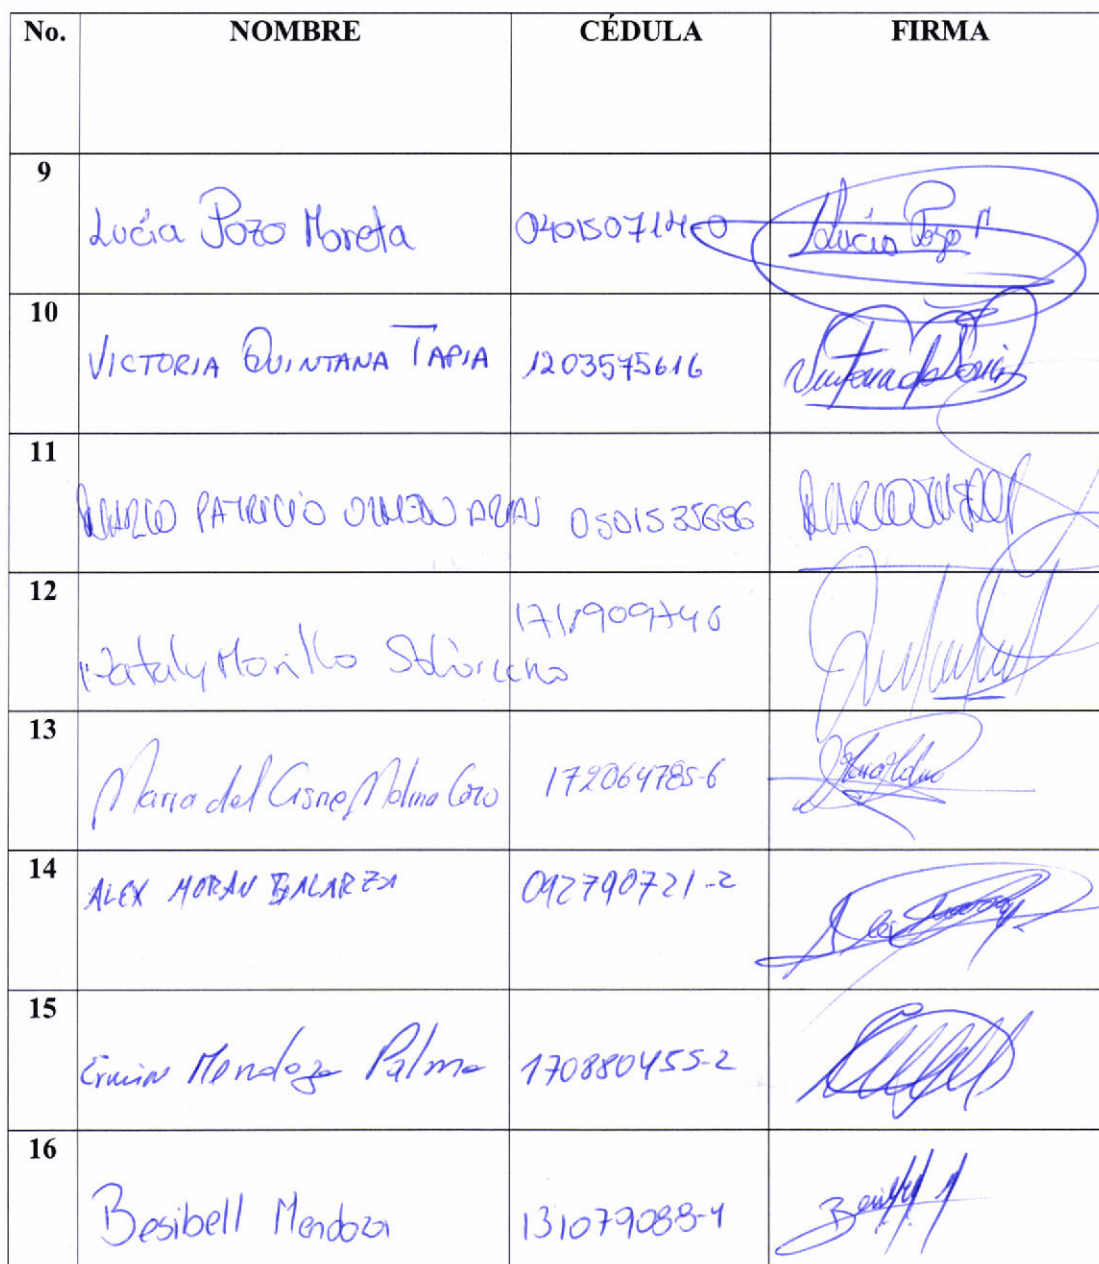 No. NOMBRE CÉDULA FIRMA
9 Lucía Pozo Moreta 040150714-0 Lucía Pozo M
10 VICTORIA QUINTANA TAPIA 1203575616
11 MARCO PATRICIO OLMEDO ARIAS 0501535686
12 Nataly Morillo 1711909746
13 Maria del Cisne Molina Coro 172064785-6
14 ALEX MORAN GALARZA 092790721-2
15 Erwin Mendoza Palma 170880455-2
16 Besibell Mendoza 131079088-4